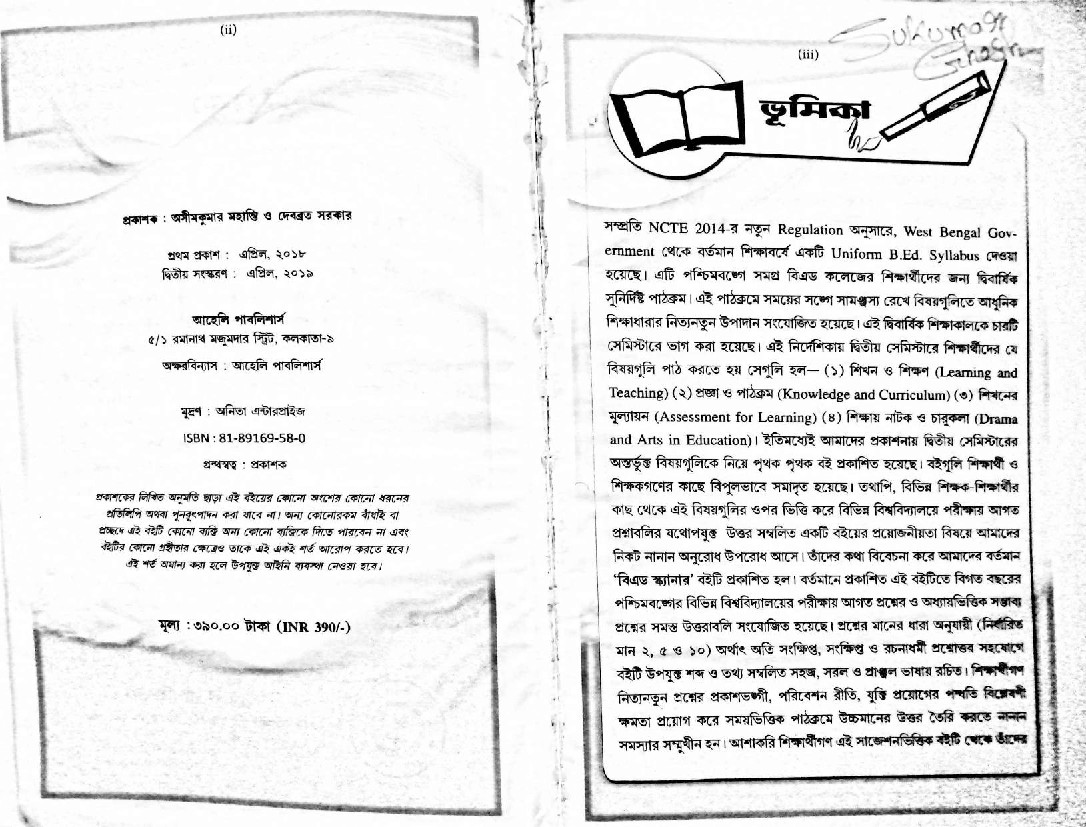 (ii)
প্রকাশক : অসীমকুমার মহান্তি ও দেবব্রত সরকার
প্রথম প্রকাশ : এপ্রিল, ২০১৮
দ্বিতীয় সংস্করণ : এপ্রিল, ২০১৯
আহেলি পাবলিশার্স
৫/১ রমানাথ মজুমদার স্ট্রিট, কলকাতা-৯
অক্ষরবিন্যাস : আহেলি পাবলিশার্স
মুদ্রণ : অনিতা এন্টারপ্রাইজ
ISBN : 81-89169-58-0
গ্রন্থস্বত্ব : প্রকাশক
প্রকাশকের লিখিত অনুমতি ছাড়া এই বইয়ের কোনো অংশের কোনো ধরনের
প্রতিলিপি অথবা পুনরুৎপাদন করা যাবে না। অন্য কোনোরকম বাঁধাই বা
প্রচ্ছদে এই বইটি কোনো ব্যক্তি অন্য কোনো ব্যক্তিকে দিতে পারবেন না এবং
বইটির কোনো গ্রহীতার ক্ষেত্রেও তাকে এই একই শর্ত আরোপ করতে হবে।
এই শর্ত অমান্য করা হলে উপযুক্ত আইনি ব্যবস্থা নেওয়া হবে।
মূল্য : ৩৯০.০০ টাকা (INR 390/-)
(iii)
Sukumar
Ghosh
ভূমিকা
সম্প্রতি NCTE 2014-র নতুন Regulation অনুসারে, West Bengal Gov-
ernment থেকে বর্তমান শিক্ষাবর্ষে একটি Uniform B.Ed. Syllabus দেওয়া
হয়েছে। এটি পশ্চিমবঙ্গে সমগ্র বিএড কলেজের শিক্ষার্থীদের জন্য দ্বিবার্ষিক
সুনির্দিষ্ট পাঠক্রম। এই পাঠক্রমে সময়ের সঙ্গে সামঞ্জস্য রেখে বিষয়গুলিতে আধুনিক
শিক্ষাধারার নিত্যনতুন উপাদান সংযোজিত হয়েছে। এই দ্বিবার্ষিক শিক্ষাকালকে চারটি
সেমিস্টারে ভাগ করা হয়েছে। এই নির্দেশিকায় দ্বিতীয় সেমিস্টারে শিক্ষার্থীদের যে
বিষয়গুলি পাঠ করতে হয় সেগুলি হল— (১) শিখন ও শিক্ষণ (Learning and
Teaching) (২) প্রজ্ঞা ও পাঠক্রম (Knowledge and Curriculum) (৩) শিখনের
মূল্যায়ন (Assessment for Learning) (৪) শিক্ষায় নাটক ও চারুকলা (Drama
and Arts in Education)। ইতিমধ্যেই আমাদের প্রকাশনায় দ্বিতীয় সেমিস্টারের
অন্তর্ভুক্ত বিষয়গুলিকে নিয়ে পৃথক পৃথক বই প্রকাশিত হয়েছে। বইগুলি শিক্ষার্থী ও
শিক্ষকগণের কাছে বিপুলভাবে সমাদৃত হয়েছে। তথাপি, বিভিন্ন শিক্ষক-শিক্ষার্থীর
কাছ থেকে এই বিষয়গুলির ওপর ভিত্তি করে বিভিন্ন বিশ্ববিদ্যালয়ে পরীক্ষায় আগত
প্রশ্নাবলির যথোপযুক্ত উত্তর সম্বলিত একটি বইয়ের প্রয়োজনীয়তা বিষয়ে আমাদের
নিকট নানান অনুরোধ উপরোধ আসে। তাঁদের কথা বিবেচনা করে আমাদের বর্তমান
‘বিএড স্ক্যানার’ বইটি প্রকাশিত হল। বর্তমানে প্রকাশিত এই বইটিতে বিগত বছরের
পশ্চিমবঙ্গের বিভিন্ন বিশ্ববিদ্যালয়ের পরীক্ষায় আগত প্রশ্নের ও অধ্যায়ভিত্তিক সম্ভাব্য
প্রশ্নের সমস্ত উত্তরাবলি সংযোজিত হয়েছে। প্রশ্নের মানের ধারা অনুযায়ী (নির্ধারিত
মান ২, ৫ ও ১০) অর্থাৎ অতি সংক্ষিপ্ত, সংক্ষিপ্ত ও রচনাধর্মী প্রশ্নোত্তর সহযোগে
বইটি উপযুক্ত শব্দ ও তথ্য সম্বলিত সহজ, সরল ও প্রাঞ্জল ভাষায় রচিত। শিক্ষার্থীগণ
নিত্যনতুন প্রশ্নের প্রকাশভঙ্গী, পরিবেশন রীতি, যুক্তি প্রয়োগের পদ্ধতি বিশ্লেষণী
ক্ষমতা প্রয়োগ করে সময়ভিত্তিক পাঠক্রমে উচ্চমানের উত্তর তৈরি করতে নানান
সমস্যার সম্মুখীন হন। আশাকরি শিক্ষার্থীগণ এই সাজেশনভিত্তিক বইটি থেকে তাঁদের